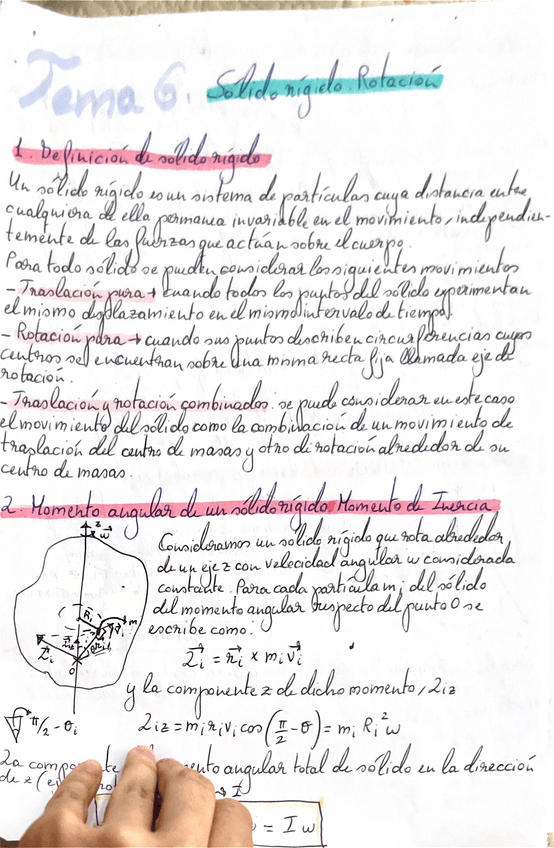 Tema 6. Sólido rígido. Rotación
1. Definición de sólido rígido
Un sólido rígido es un sistema de partículas cuya distancia entre
cualquiera de ella permanea invariable en el movimiento, independien-
temente de las fuerzas que actúan sobre el cuerpo.
Para todo sólido se pueden considerar los siguientes movimientos
- Traslación pura → cuando todos los puntos del sólido experimentan
el mismo desplazamiento en el mismo intervalo de tiempo.
- Rotación pura → cuando sus puntos describen circunferencias cuyos
centros se encuentran sobre una misma recta fija llamada eje de
rotación.
- Traslación y rotación combinados. se puede considerar en este caso
el movimiento del sólido como la combinación de un movimiento de
traslación del centro de masas y otro de rotación alrededor de su
centro de masas.
2. Momento angular de un sólido rígido. Momento de Inercia
z
ω
Consideramos un sólido rígido que rota alrededor
de un eje z con velocidad angular ω considerada
constante. Para cada partícula mi del sólido
del momento angular respecto del punto O se
escribe como:
Ri
m
Li
O
Li = ri × mi vi
y la componente z de dicho momento, Liz
π/2 - θi
Liz = mi ri vi cos(π/2 - θ) = mi Ri² ω
La mento angular total de sólido en la dirección
de z
→ I
= I ω